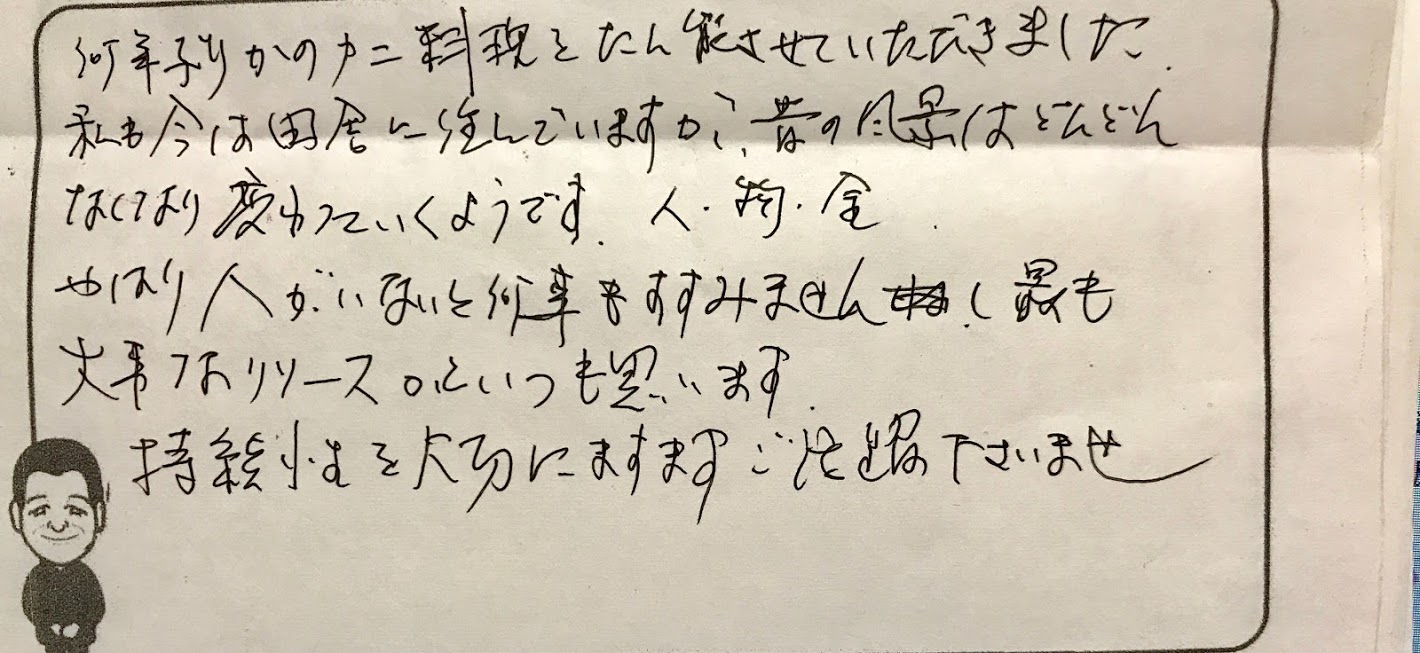 何年ぶりかのカニ料理をたん能させていただきました。
私も今は田舎に住んでいますが、昔の風景はどんどん
なくなり変わっていくようです。人・物・金
やはり人がいないと何事もすすみません し最も
大事なリソースだといつも思います。
持続性を大切にますますご活躍下さいませ